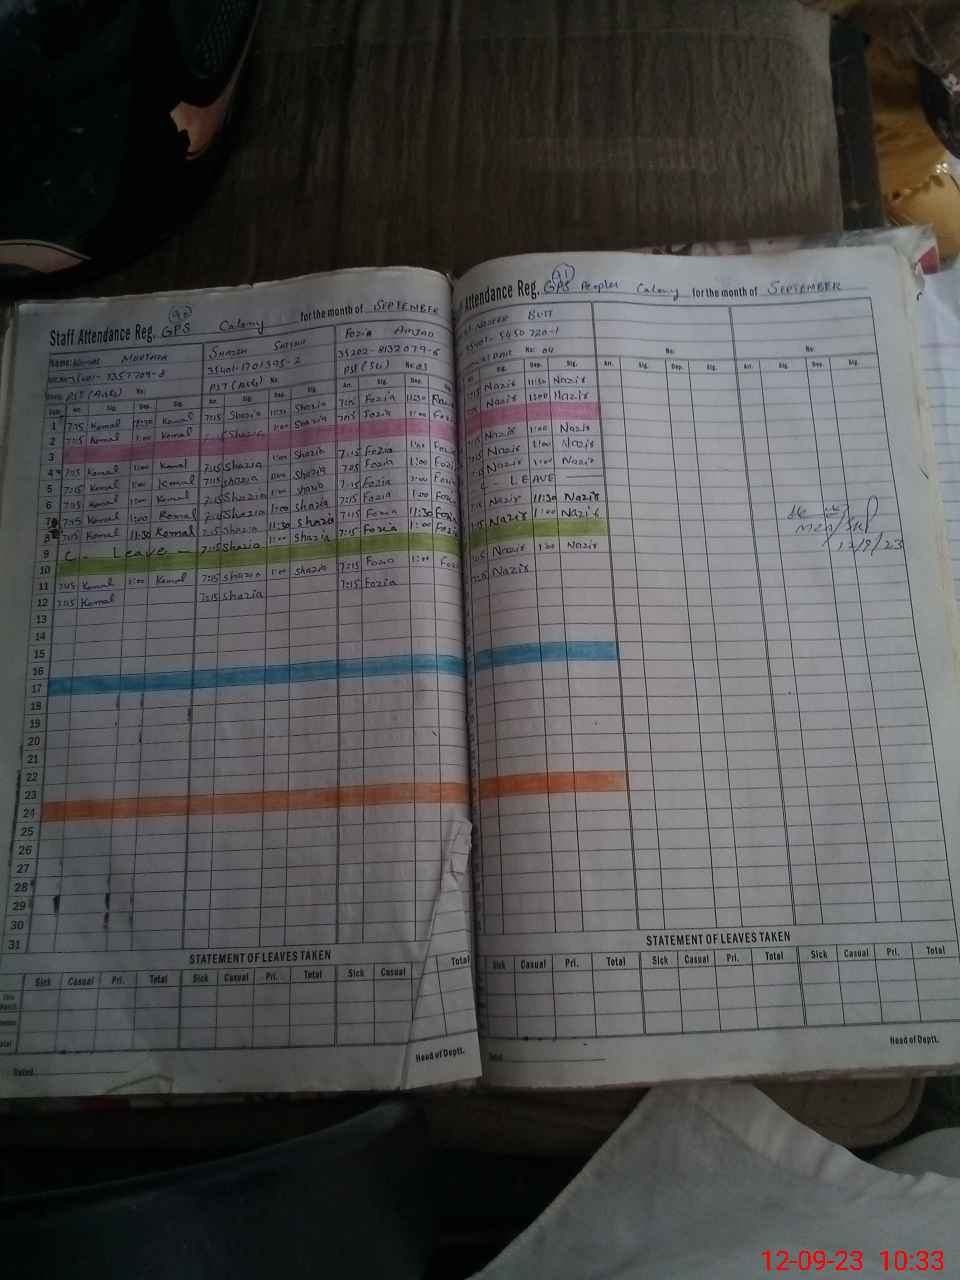 Staff Attendance Reg. GPS Colony for the month of SEPTEMBER
90
Name: Komal MURTAZA
SHAZIA
Fozia AMJAD
35401-1701395-2
35202-8132079-6
PST No: 03
Date Arr. Sig. Dep. Sig. Arr. Sig. Dep. Sig. Arr. Sig. Dep.
1 7:15 Komal 11:30 Komal 7:15 Shazia 11:30 Shazia 7:15 Fozia 11:30
2 7:15 Komal 1:00 Komal 7:15 Shazia 1:00 Shazia 7:15 Fozia 1:00
3
4 7:15 Komal 1:00 Komal 7:15 Shazia 1:00 Shazia 7:15 Fozia 1:00
5 7:15 Komal 1:00 Komal 7:15 Shazia 1:00 Shazia 7:15 Fozia 1:00
6 7:15 Komal 1:00 Komal 7:15 Shazia 1:00 Shazia 7:15 Fozia 1:00
7 7:15 Komal 1:00 Komal 7:15 Shazia 1:00 Shazia 7:15 Fozia 1:00
8 7:15 Komal 11:30 Komal 7:15 Shazia 11:30 Shazia 7:15 Fozia 11:30
9 C - Leave - 7:15 Shazia 1:00 Shazia 7:15 Fozia 1:00
10
11 7:15 Komal 1:00 Komal 7:15 Shazia 1:00 Shazia 7:15 Fozia 1:00
12 7:15 Komal 7:15 Shazia 7:15 Fozia
13
14
15
16
17
18
19
20
21
22
23
24
25
26
27
28
29
30
31
STATEMENT OF LEAVES TAKEN
Sick Casual Pri. Total Sick Casual Pri. Total Sick Casual Total
Head of Deptt.
Dated
Attendance Reg. GPS Peoples Colony for the month of SEPTEMBER
91
BUTT
35401-5450720-1
No: 04 No: No:
Sig. Dep. Sig. Arr. Sig. Dep. Sig. Arr. Sig. Dep. Sig.
7:15 Nazir 11:30 Nazir
7:15 Nazir 1:00 Nazir
7:15 Nazir 1:00 Nazir
7:15 Nazir 1:00 Nazir
7:15 Nazir 1:00 Nazir
C - LEAVE
7:15 Nazir 11:30 Nazir
7:15 Nazir 1:00 Nazir
7:15 Nazir 1:00 Nazir
7:15 Nazir
12/9/23
STATEMENT OF LEAVES TAKEN
Sick Casual Pri. Total Sick Casual Pri. Total Sick Casual Pri. Total
Head of Deptt.
Dated
12-09-23 10:33